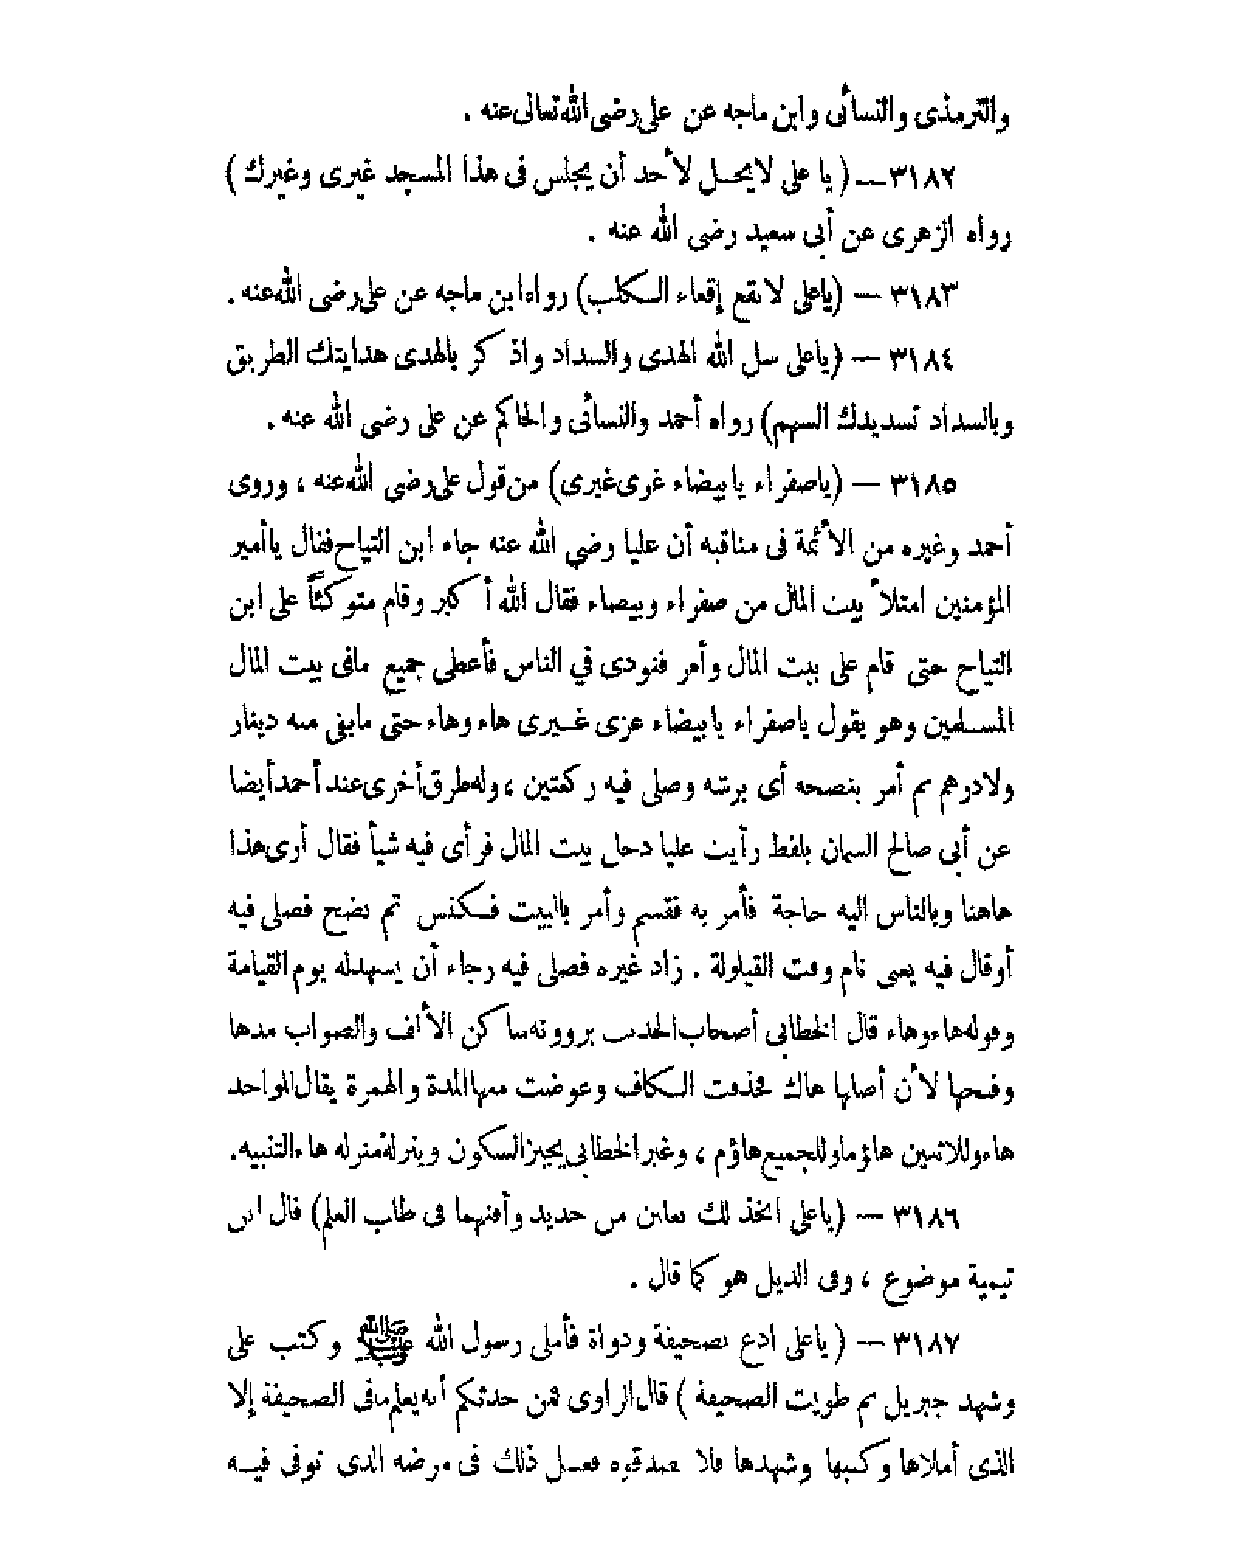 والترمذى والنسائى وابن ماجه عن على رضى الله تعالى عنه .
٣١٨٢ — ( يا على لايحل لأحد أن يجلس فى هذا المسجد غيرى وغيرك )
رواه الزهرى عن أبى سعيد رضى الله عنه .
٣١٨٣ — (ياعلى لاتقع إقعاء الكلب) رواه ابن ماجه عن على رضى الله عنه .
٣١٨٤ — (ياعلى سل الله الهدى والسداد واذكر بالهدى هدايتك الطريق
وبالسداد تسديدك السهم) رواه أحمد والنسائى والحاكم عن على رضى الله عنه .
٣١٨٥ — (ياصفراء يابيضاء غرى غيرى) من قول على رضى الله عنه ، وروى
أحمد وغيره من الأئمة فى مناقبه أن عليا رضى الله عنه جاء ابن التياح فقال ياأمير
المؤمنين امتلأ بيت المال من صفراء وبيضاء فقال الله أكبر وقام متوكئاً على ابن
التياح حتى قام على بيت المال وأمر فنودى في الناس فأعطى جميع مافى بيت المال
المسلمين وهو يقول ياصفراء يابيضاء عزى غيرى هاء وهاء حتى مابقى منه دينار
ولادرهم ثم أمر بنضحه أى برشه وصلى فيه ركعتين ، وله طرق أخرى عند أحمد أيضا
عن أبى صالح السمان بلفظ رأيت عليا دخل بيت المال فرأى فيه شيأ فقال أرى هذا
هاهنا وبالناس اليه حاجة فأمر به فقسم وأمر بالبيت فكنس ثم نضح فصلى فيه
أوقال فيه يعنى نام وقت القيلولة . زاد غيره فصلى فيه رجاء أن يشهد له يوم القيامة
وقوله هاء وهاء قال الخطابى أصحاب الحديث يروونه ساكن الألف والصواب مدها
وفتحها لأن أصلها هاك فحذفت الكاف وعوضت منها المدة والهمزة يقال للواحد
هاء وللاثنين هاؤما وللجميع هاؤم ، وغير الخطابى يجيز السكون وينزله منزلة هاء التنبيه .
٣١٨٦ — (ياعلى اتخذ لك نعلين من حديد وأفنهما فى طلب العلم) قال ابن
تيمية موضوع ، وفى الذيل هو كما قال .
٣١٨٧ — ( ياعلى ادع بصحيفة ودواة فأملى رسول الله ﷺ وكتب على
وشهد جبريل ثم طويت الصحيفة ) قال الراوى فمن حدثكم أنه يعلم مافى الصحيفة إلا
الذى أملاها وكتبها وشهدها فلا تصدقوه فعل ذلك فى مرضه الذى توفى فيه